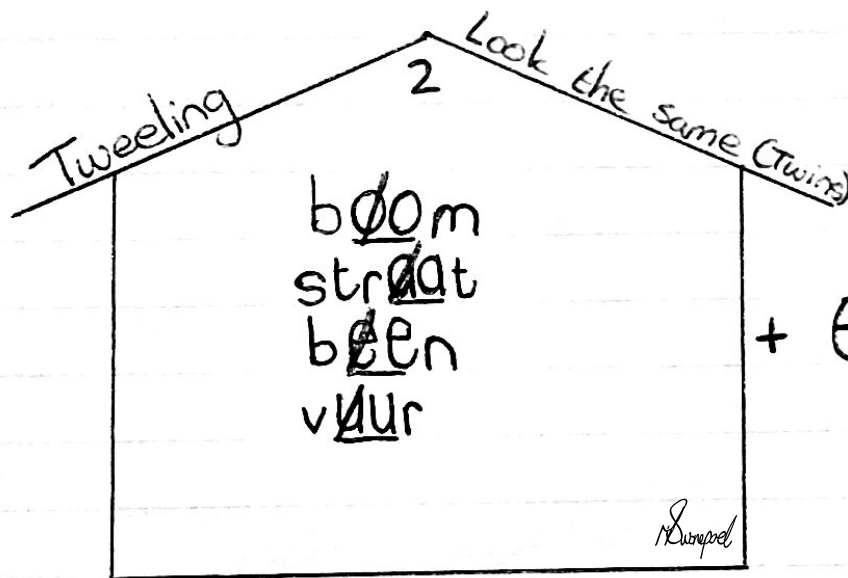 Tweeling
Look the same (Twins)
2
boom
straat
been
vuur
+ e
MSwanepoel